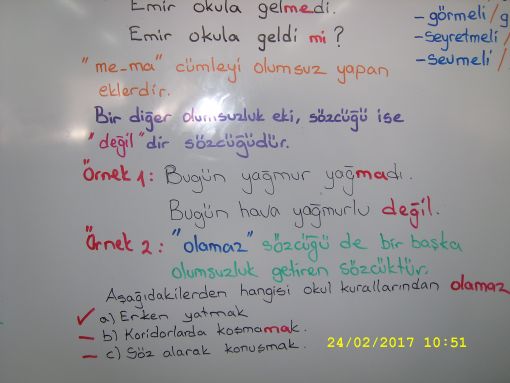 Emir okula gelmedi.
Emir okula geldi mi?
"me-ma" cümleyi olumsuz yapan
eklerdir.
Bir diğer olumsuzluk eki, sözcüğü ise
"değil" dir sözcüğüdür.
Örnek 1: Bugün yağmur yağmadı.
Bugün hava yağmurlu değil.
Örnek 2: "olamaz" sözcüğü de bir başka
olumsuzluk getiren sözcüktür.
Aşağıdakilerden hangisi okul kurallarından olamaz
a) Erken yatmak
b) Koridorlarda koşmamak.
c) Söz alarak konuşmak.
- görmeli /
- seyretmeli /
- sevmeli /
24/02/2017 10:51